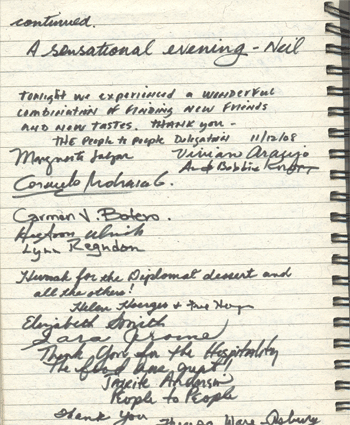 continued.
A sensational evening - Neil
Tonight we experienced a wonderful
combination of finding new friends
and now tastes. Thank you -
The People to People Delegation 11/12/08
Marguerite Vivian Araujo
And Bobbie
Consuelo
Carmen V. Botero.
Ulrich
Lynn
Hurrah for the Diplomat dessert and
all the others!
Helen Hoerger +
Elizabeth Smith
Sara
Thank You for the Hospitality
The food was great!
Jackie Anderson
People to People
Thank you